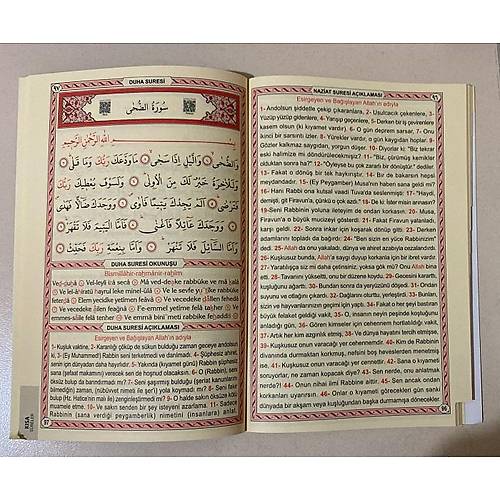 NAZİAT SURESİ AÇIKLAMASI
٩٦
Esirgeyen ve Bağışlayan Allah'ın adıyla
1- Andolsun şiddetle çekip çıkaranlara, 2- Usulcacık çekenlere, 3-
Yüzüp yüzüp gidenlere, 4- Yarışıp geçenlere, 5- Derken bir iş çevirenlere
kasem olsun (ki kıyamet vardır). 6- O gün deprem sarsar, 7- Onu
ikinci bir sarsıntı izler. 8- Yürekler vardır, o gün kaygıdan hoplar. 9-
Gözler kalkmaz saygıdan, yorgun düşer. 10- Diyorlar ki: "Biz tekrar
eski halimize mi döndürüleceğmişiz? 11- "Biz, çürümüş kemikler
olduktan sonra ha?" 12- "Öyleyse bu çok zararlı bir dönüştür." dediler.
13- Fakat o dönüş bir tek haykırıştır. 14- Bir de bakarsın hepsi
meydandadır. 15- (Ey Peygamber) Musa'nın haberi sana geldi mi?
16- Hani Rabbi ona kutsal vadi Tuva'da seslenmişti: 17- "Haydi,
demişti, git Firavun'a, çünkü o iyice azdı." 18- De ki: İster misin arınasın?
19- Seni Rabbinin yoluna ileteyim de ondan korkasın. 20- Musa,
Firavun'a o büyük mucizeyi gösterdi. 21- Fakat Firavun yalanladı,
karşı geldi. 22- Sonra inkar için koşarak dönüp gitti. 23- Derken
adamlarını topladı da bağırdı: 24- "Ben sizin en yüce Rabbinizim"
dedi. 25- Allah da onu yakaladı, dünya ve ahiret azabıyla cezalandırdı.
26- Kuşkusuz bunda, Allah'a saygı duyup korkanlar için bir ibret vardır.
27- Yaratılışça siz mi daha çetinsiniz, yoksa gök mü? Onu Allah bina
etti. 28- Tavanını yükseltti, onu bir düzene koydu. 29- Gecesini kararttı,
kuşluğunu ağarttı. 30- Bundan sonra da yeryüzünü döşedi. 31- Ondan
suyunu ve otlağını çıkardı. 32- Dağlarını oturttu, yerleştirdi. 33- Bunları,
sizin ve hayvanlarınızın geçimi için yaptı. 34- Fakat o her şeyi bastıran
büyük felaket geldiği vakit, 35- O, insanın neyin peşinde koştuğunu
anladığı gün, 36- Gören kimseler için cehennem hortlatıldığı vakit,
37- Artık her kim azgınlık etmiş, 38- Ve dünya hayatını tercih etmişse,
39- Kuşkusuz onun varacağı yer cehennemdir. 40- Kim de Rabbinin
divanında durmaktan korkmuş, nefsini boş heveslerden menetmiş
ise, 41- Kuşkusuz onun varacağı yer cennettir. 42- Sana o kıyameti
soruyorlar, ne zaman kopacak diye? 43- Sen nerde, onu anlatmak
nerde? 44- Onun nihai ilmi Rabbine aittir. 45- Sen ancak ondan
korkanları uyarırsın. 46- Onlar o kıyameti görecekleri gün sanki
dünyada bir akşam veya kuşluğundan başka durmamışa dönecekler.
96
٩٧
DUHA SURESİ
سُورَةُ الضُّحٰى
بِسْــــمِ اللهِ الرَّحْمٰنِ الرَّحِيمِ
وَالضُّحٰى ۝ وَالَّيْلِ اِذَا سَجٰى ۝ مَا وَدَّعَكَ رَبُّكَ وَمَا قَلٰى ۝
وَلَلْاٰخِرَةُ خَيْرٌ لَكَ مِنَ الْاُولٰى ۝ وَلَسَوْفَ يُعْطِيكَ رَبُّكَ
فَتَرْضٰى ۝ اَلَمْ يَجِدْكَ يَتِيمًا فَاٰوٰى ۝ وَوَجَدَكَ ضَالًّا فَهَدٰى ۝
وَوَجَدَكَ عَائِلًا فَاَغْنٰى ۝ فَاَمَّا الْيَتِيمَ فَلَا تَقْهَرْ ۝
وَاَمَّا السَّائِلَ فَلَا تَنْهَرْ ۝ وَاَمَّا بِنِعْمَةِ رَبِّكَ فَحَدِّثْ ۝
DUHA SURESİ OKUNUŞU
Bismillâhir-rahmânir-rahîm
Ved-duhâ Vel-leyli izâ secâ Mâ ved-deake rabbüke ve mâ kalâ
Ve lel-âhiratü hayrul leke minel-ûlâ Ve le sevfe yu'tîke rabbüke
feterdâ Elem yecidke yetîmen feâvâ Ve vecedeke dâllen fehedâ
Ve vecedeke âilen feağnâ Fe-emmel yetîme felâ takher Ve
emmes-sâile felâ tenher Ve emmâ bini'meti rabbike fehaddis
DUHA SURESİ AÇIKLAMASI
Esirgeyen ve Bağışlayan Allah'ın adıyla
1- Kuşluk vaktine, 2- Karanlığı çöküp sükun bulduğu zaman geceye andolsun
ki, 3- (Ey Muhammed!) Rabbin seni terketmedi ve darılmadı. 4- Şüphesiz ahiret,
senin için dünyadan daha hayırlıdır. 5- Yakında (kıyamet günü) Rabbin şüphesiz
sana (şefaat yetkisi) verecek ve sen de hoşnut olacaksın. 6- O (Rabbin), seni
öksüz bulup da barındırmadı mı? 7- Seni şaşırmış bulduğu (şeriat kanunlarını
bilmediğin) zaman, doğru yola (nübüvvet nimeti ile şer'i) yola koymadı mı? 8- Seni fakir
bulup (Hz. Hatice'nin malı ile) zenginleştirmedi mi? 9- O halde sakın öksüze kötü
muamele etme. 10- Ve sakın senden bir şey isteyeni azarlama. 11- Sadece
Rabbinin (sana verdiği peygamberlik) nimetini (insanlara) anlat.
97
KISA
SURELER